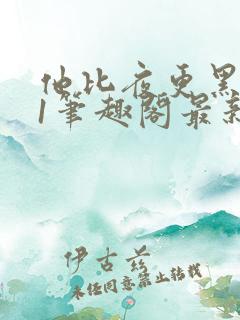 他比夜更黑
1笔趣阁最新
伊古兹
未经同意禁止转载